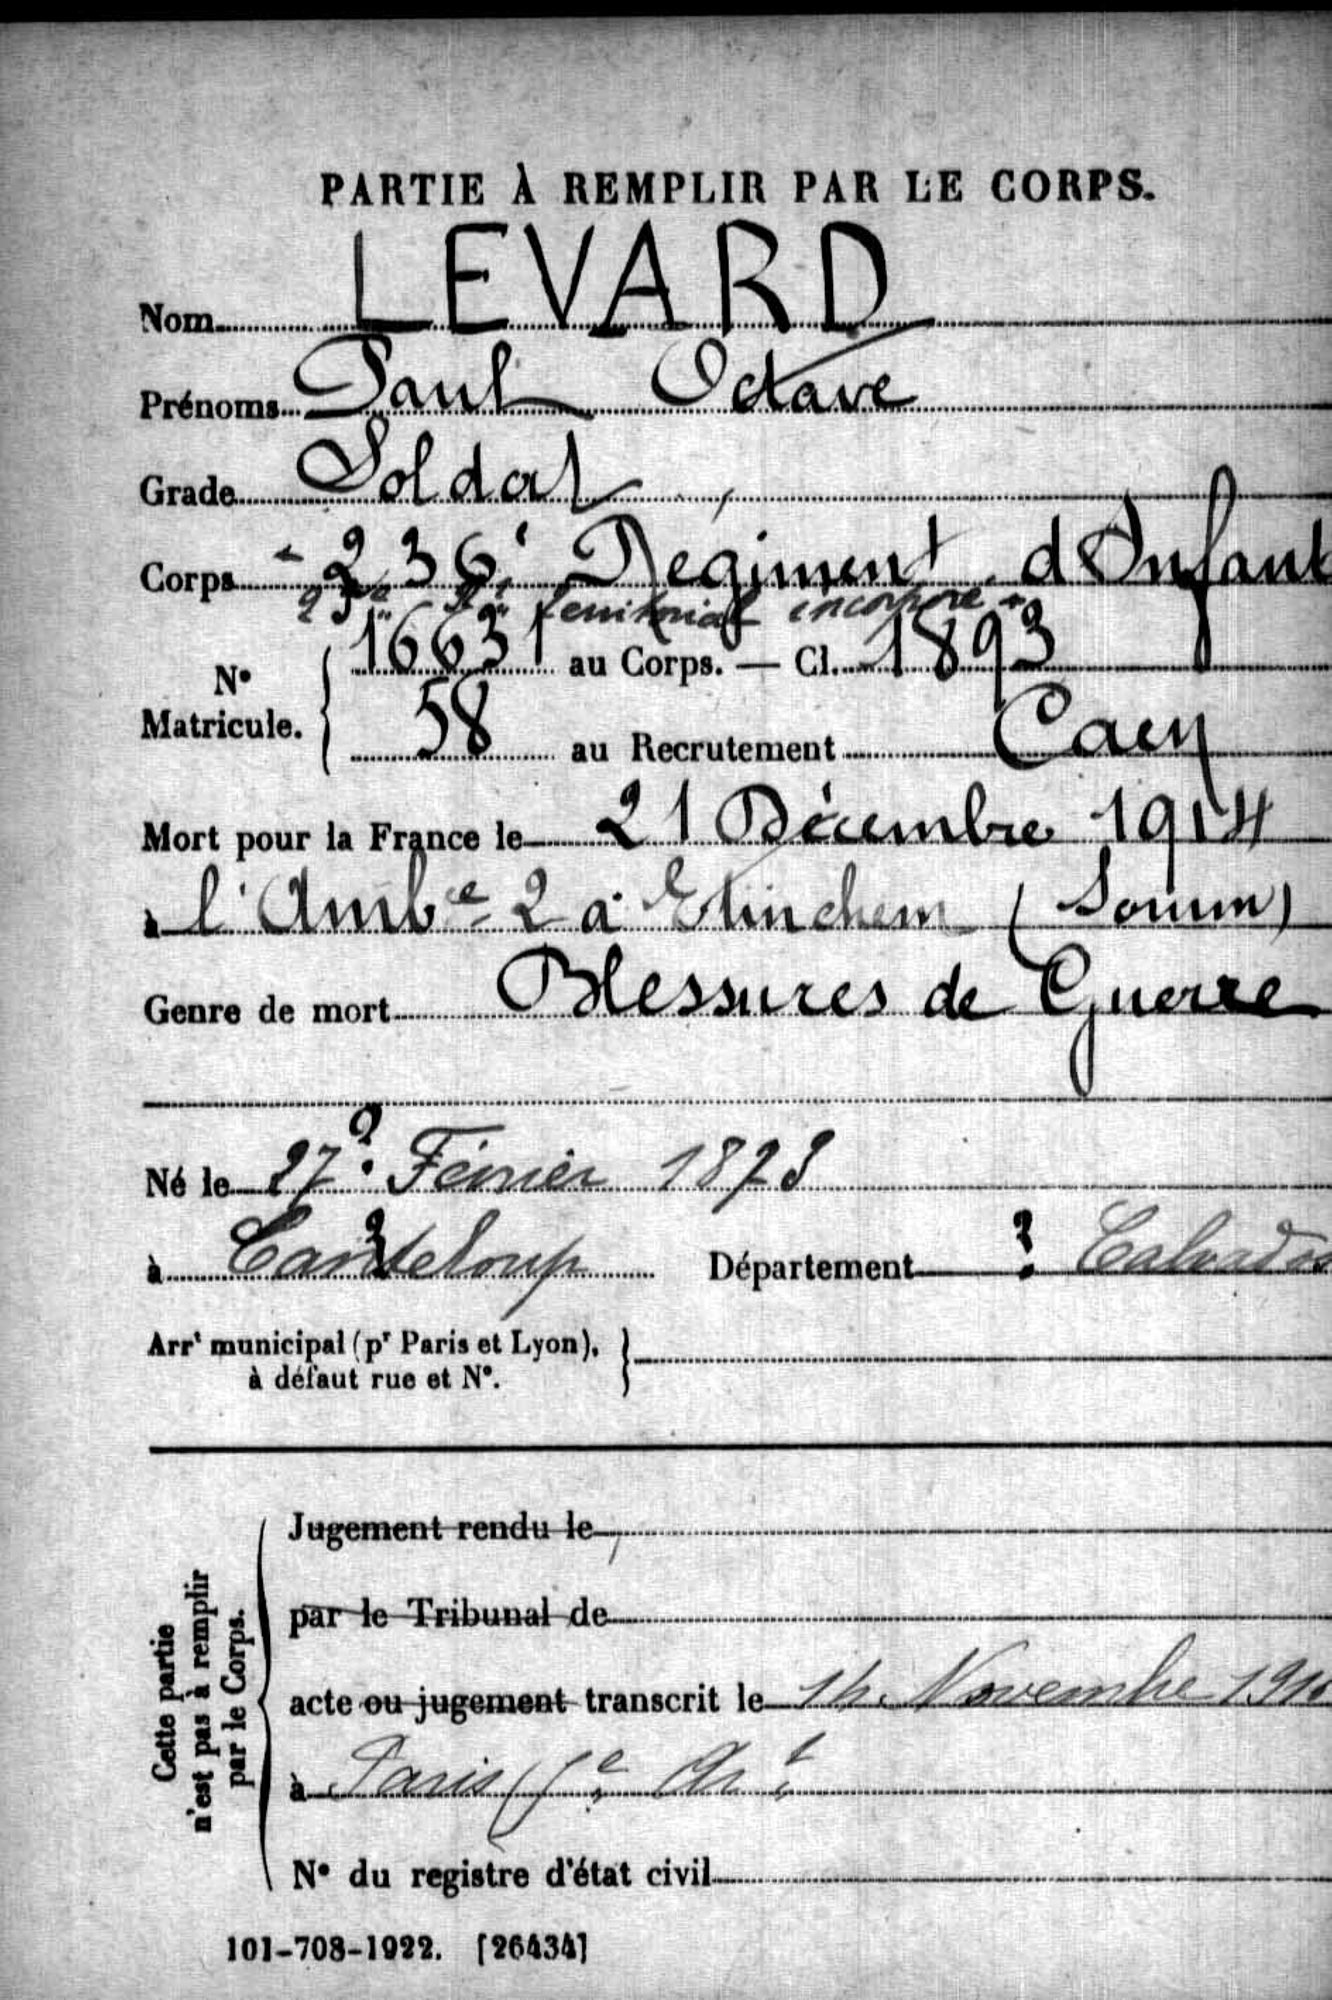 PARTIE À REMPLIR PAR LE CORPS.
Nom LEVARD
Prénoms Paul Octave
Grade Soldat
Corps 236e Régiment d'Infant
territorial incorporé
N° Matricule. 16631 au Corps. — Cl. 1893
58 au Recrutement Caen
Mort pour la France le 21 Décembre 1914
à l'Ambce 2 à Etinchem (Somme)
Genre de mort Blessures de Guerre
Né le 27 ? Février 1873
à Canteloup ? Département ? Calvados
Arrt municipal (pr Paris et Lyon),
à défaut rue et N°.
Cette partie
n'est pas à remplir
par le Corps.
Jugement rendu le
par le Tribunal de
acte ou jugement transcrit le 14 Novembre 191
à Paris Art
N° du registre d'état civil
101-708-1922. [26434]